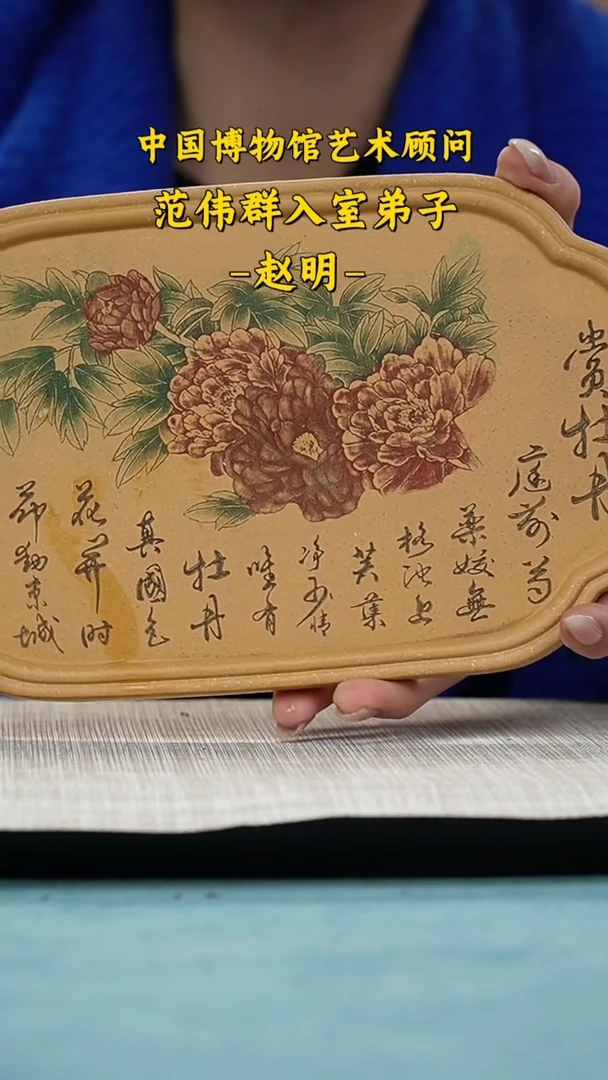 中国博物馆艺术顾问
范伟群入室弟子
-赵明-
赏牡丹
庭前芍
药妖無
格池上
芙蕖
净少情
唯有
牡丹
真國色
花开时
节動京城